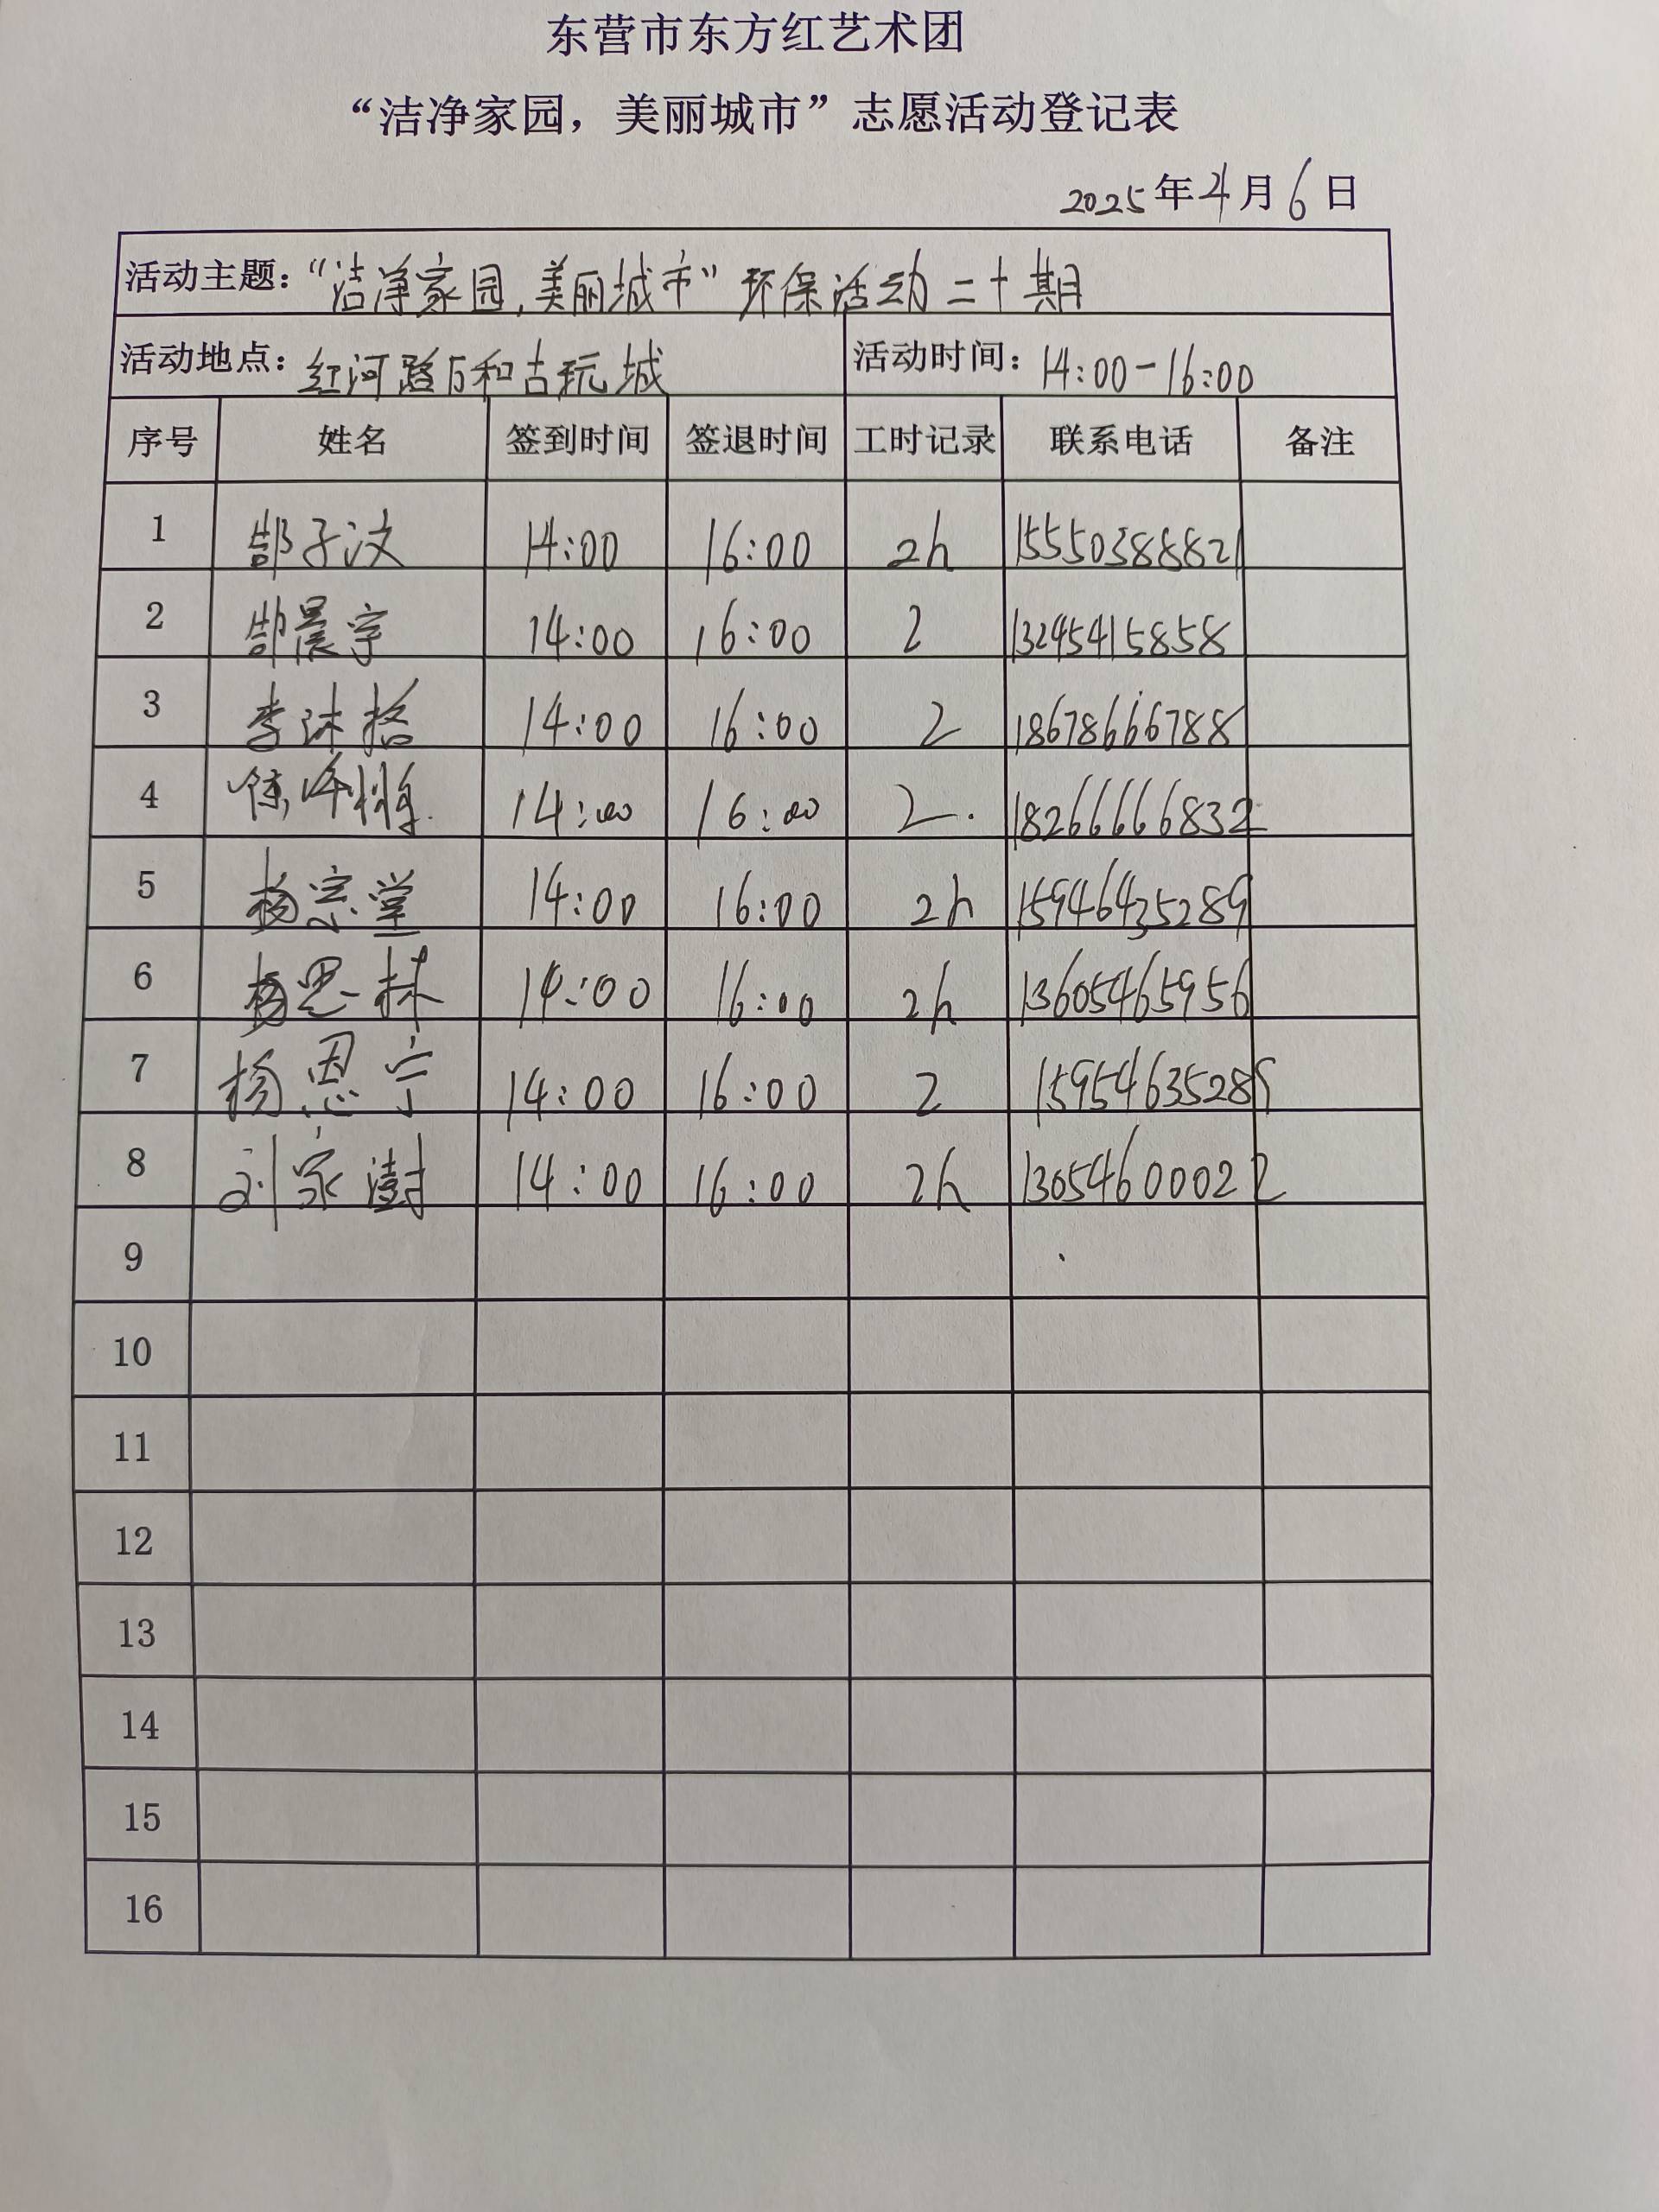 东营市东方红艺术团
“洁净家园，美丽城市”志愿活动登记表
2025年4月6日
活动主题：“洁净家园,美丽城市”环保活动二十期
活动地点：红河路万和古玩城 活动时间：14:00-16:00
序号 姓名 签到时间 签退时间 工时记录 联系电话 备注
1 郜子汶 14:00 16:00 2h 15550388821
2 郜晨宇 14:00 16:00 2 13245415858
3 李沐格 14:00 16:00 2 18678666788
4 14:00 16:00 2. 18266666832
5 杨宗堂 14:00 16:00 2h 15946435289
6 杨思林 14:00 16:00 2h 13605465956
7 杨恩宁 14:00 16:00 2 15954635289
8 刘家澍 14:00 16:00 2h 13054600022
9
10
11
12
13
14
15
16